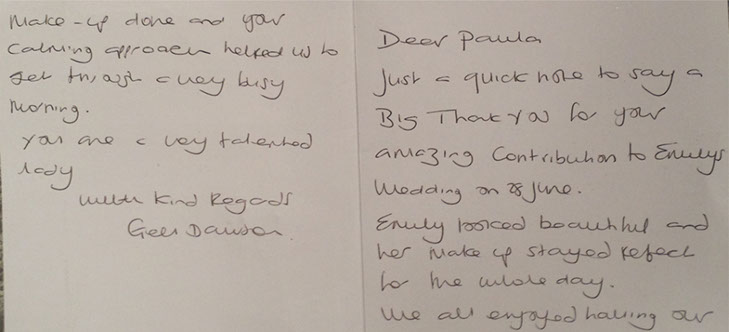 Dear Paula
Just a quick note to say a
Big Thank You for your
amazing Contribution to Emilys
Wedding on June.
Emily looced beautiful and
her make up stayed Pefect
for the whole day.
We all enjoyed having our
Make-up done and your
Calming approach helped us to
get through a very busy
Morning.
You are a very talented
lady
With Kind Regards
Dawson.